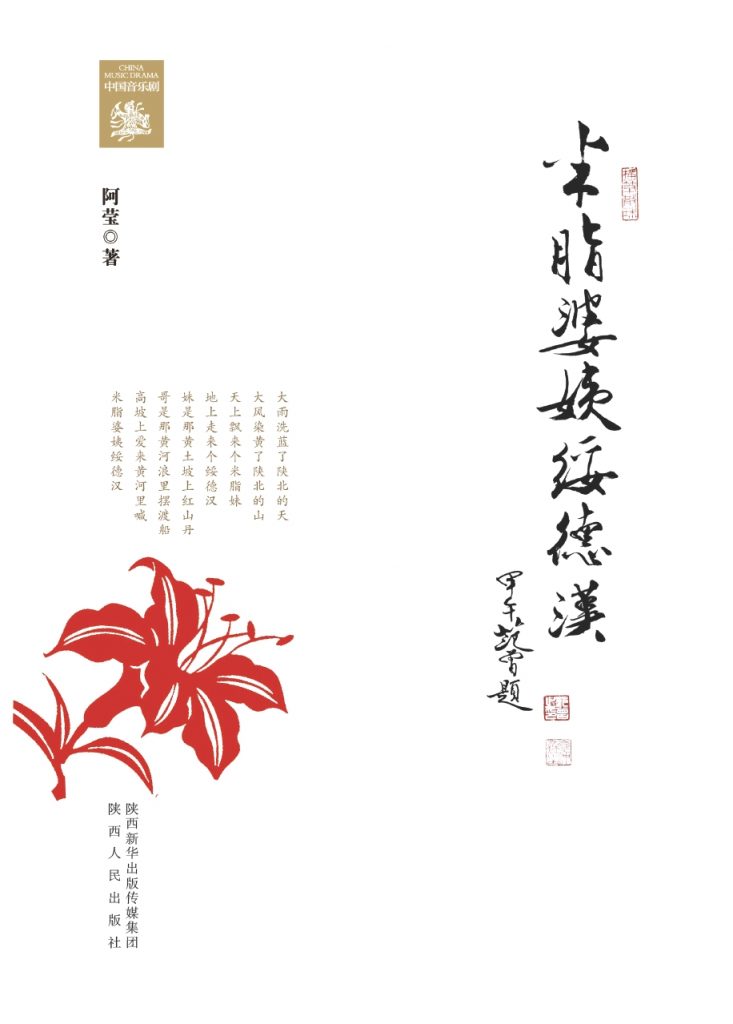 CHINA
MUSIC DRAMA
中国音乐剧
米脂婆姨绥德漢
甲午范曾題
阿莹◎著
大雨洗蓝了陕北的天
大风染黄了陕北的山
天上飘来个米脂妹
地上走来个绥德汉
妹是那黄土坡上红山丹
哥是那黄河浪里摆渡船
高坡上爱来黄河里喊
米脂婆姨绥德汉
陕西新华出版传媒集团
陕西人民出版社